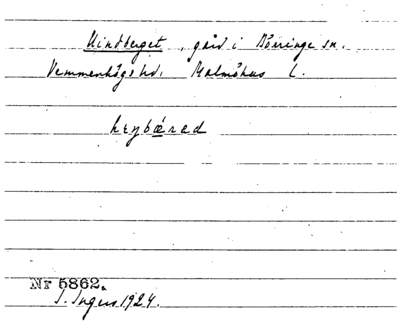 Kindberget, gård i Börringe sn.
Vemmenhögs hd. Malmöhus L.
Nr 5862.
J. Ingers 1924.